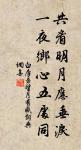 共看明月應垂淚
一夜鄉心五處同
白居易望月有感詞典
詞集